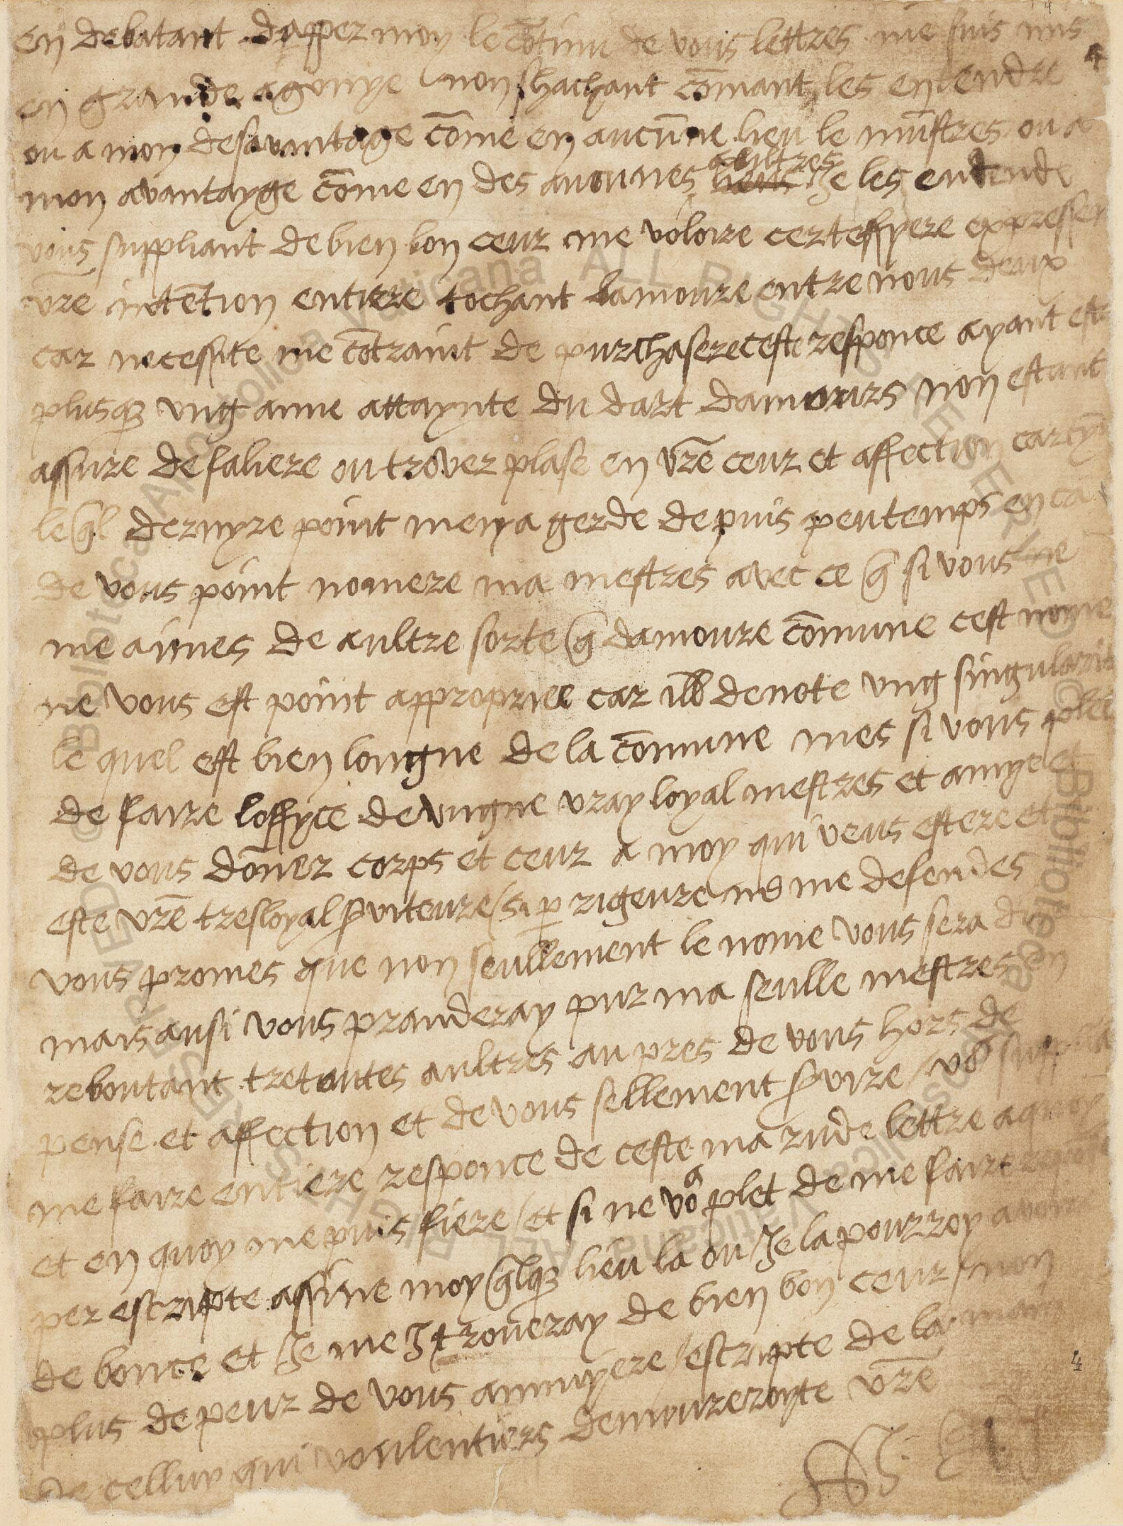 en debatant dapper moy le cōtinu de vous lettres me suis mis
en grande agonye non sachant cōmant les entendre
ou a mon desavantage cōme en aucūne lieu le mūstres ou a
mon avantayge cōme en des aucunes aultres Je les entende
vous suppliant de bien bon ceur me voloire certeffyere expresse
vr̄e intētion entiere tochant lamoure entre nous deux
car necessite me cōtraint de purchasere ceste responce ayant este
plusq̄ ung anne attaynte du dart damours non estant
assure de faliere ou trover plase en vr̄e ceur et affection
leq̄l dernyre point menya gerde depuis peu temps en
de vous point nomere ma mestres avec ce q̄ si vous ne
me aimes de aultre sorte q̄ damoure cōmune cest nome
ne vous est point approprice car ill denote ung singularit
le quel est bien longne de la cōmune mes si vous plet
de faire loffyce de ungne vray loyal mestres et amye et
de vous dōner corps et ceur a moy qui veus estere et
este vr̄e tresloyal s̄viteure si p̄ rigeure ne me defendes
vous promes que non seullement le nome vous sera
mais ausi vous pranderay pur ma seulle mestres en
reboutant tretoutes aultres aupres de vous hors de
pense et affection et de vous sellement s̄vire
me faire entiere responce de ceste ma rude lettre a quoy
et en quoy me puis fiere et si ne vo9 plet de me faire
per escripte assine moy q̄lq̄ lieu la ou Je la pourroy avoire
de bouce et Je me trouveray de bien bon ceur non
plus de peur de vous annuyere escripte de la main
de celluy qui voulentiers demureroyte vr̄e
4
4
© Biblioteca Apostolica Vaticana ALL RIGHTS RESERVED